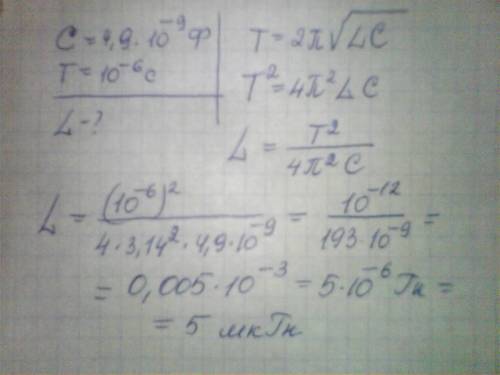 C = 4,9·10⁻⁹ Ф
T = 10⁻⁶ с
L - ?
T = 2π√LC
T² = 4π² L C
L = T² / 4π² C
L = (10⁻⁶)² / 4·3,14²·4,9·10⁻⁹ = 10⁻¹² / 193·10⁻⁹ =
= 0,005·10⁻³ = 5·10⁻⁶ Гн =
= 5 мкГн